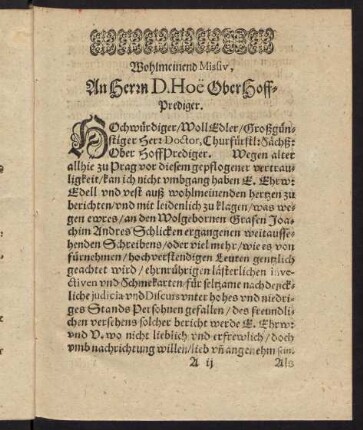 Wohlmeinend Missiv,
An Herrn D. Hoë Ober Hoff-
Prediger.
HOchwürdiger/WollEdler/Großgün-
stiger Herr Doctor, Churfürstl: Sächß:
Ober HoffPrediger. Wegen alter
allhie zu Prag vor diesem gepflogener vertrau-
ligkeit/kan ich nicht vmbgang haben E. Ehrw:
Edell vnd vest auß wohlmeinenden hertzen zu
berichten/vnd mit leidenlich zu klagen/was we-
gen ewres/an den Wolgebornen Grafen Joa-
chim Andres Schlicken ergangenen weitausse-
henden Schreibens/oder viel mehr/wie es von
fürnehmen/hochverstendigen Leuten gentzlich
geachtet wird/ehrnrührigen lästerlichen inve-
ctiven vnd Schmekarten für seltzame nachdenck-
liche judicia vnd Discurs vnter hohes vnd niedri-
ges Stands Persohnen gefallen/des freundli-
chen versehens solcher bericht werde E. Ehrw:
vnd V. wo nicht lieblich vnd erfrewlich/doch
vmb nachrichtung willen/lieb vñ angenehm sein.
A ij Als